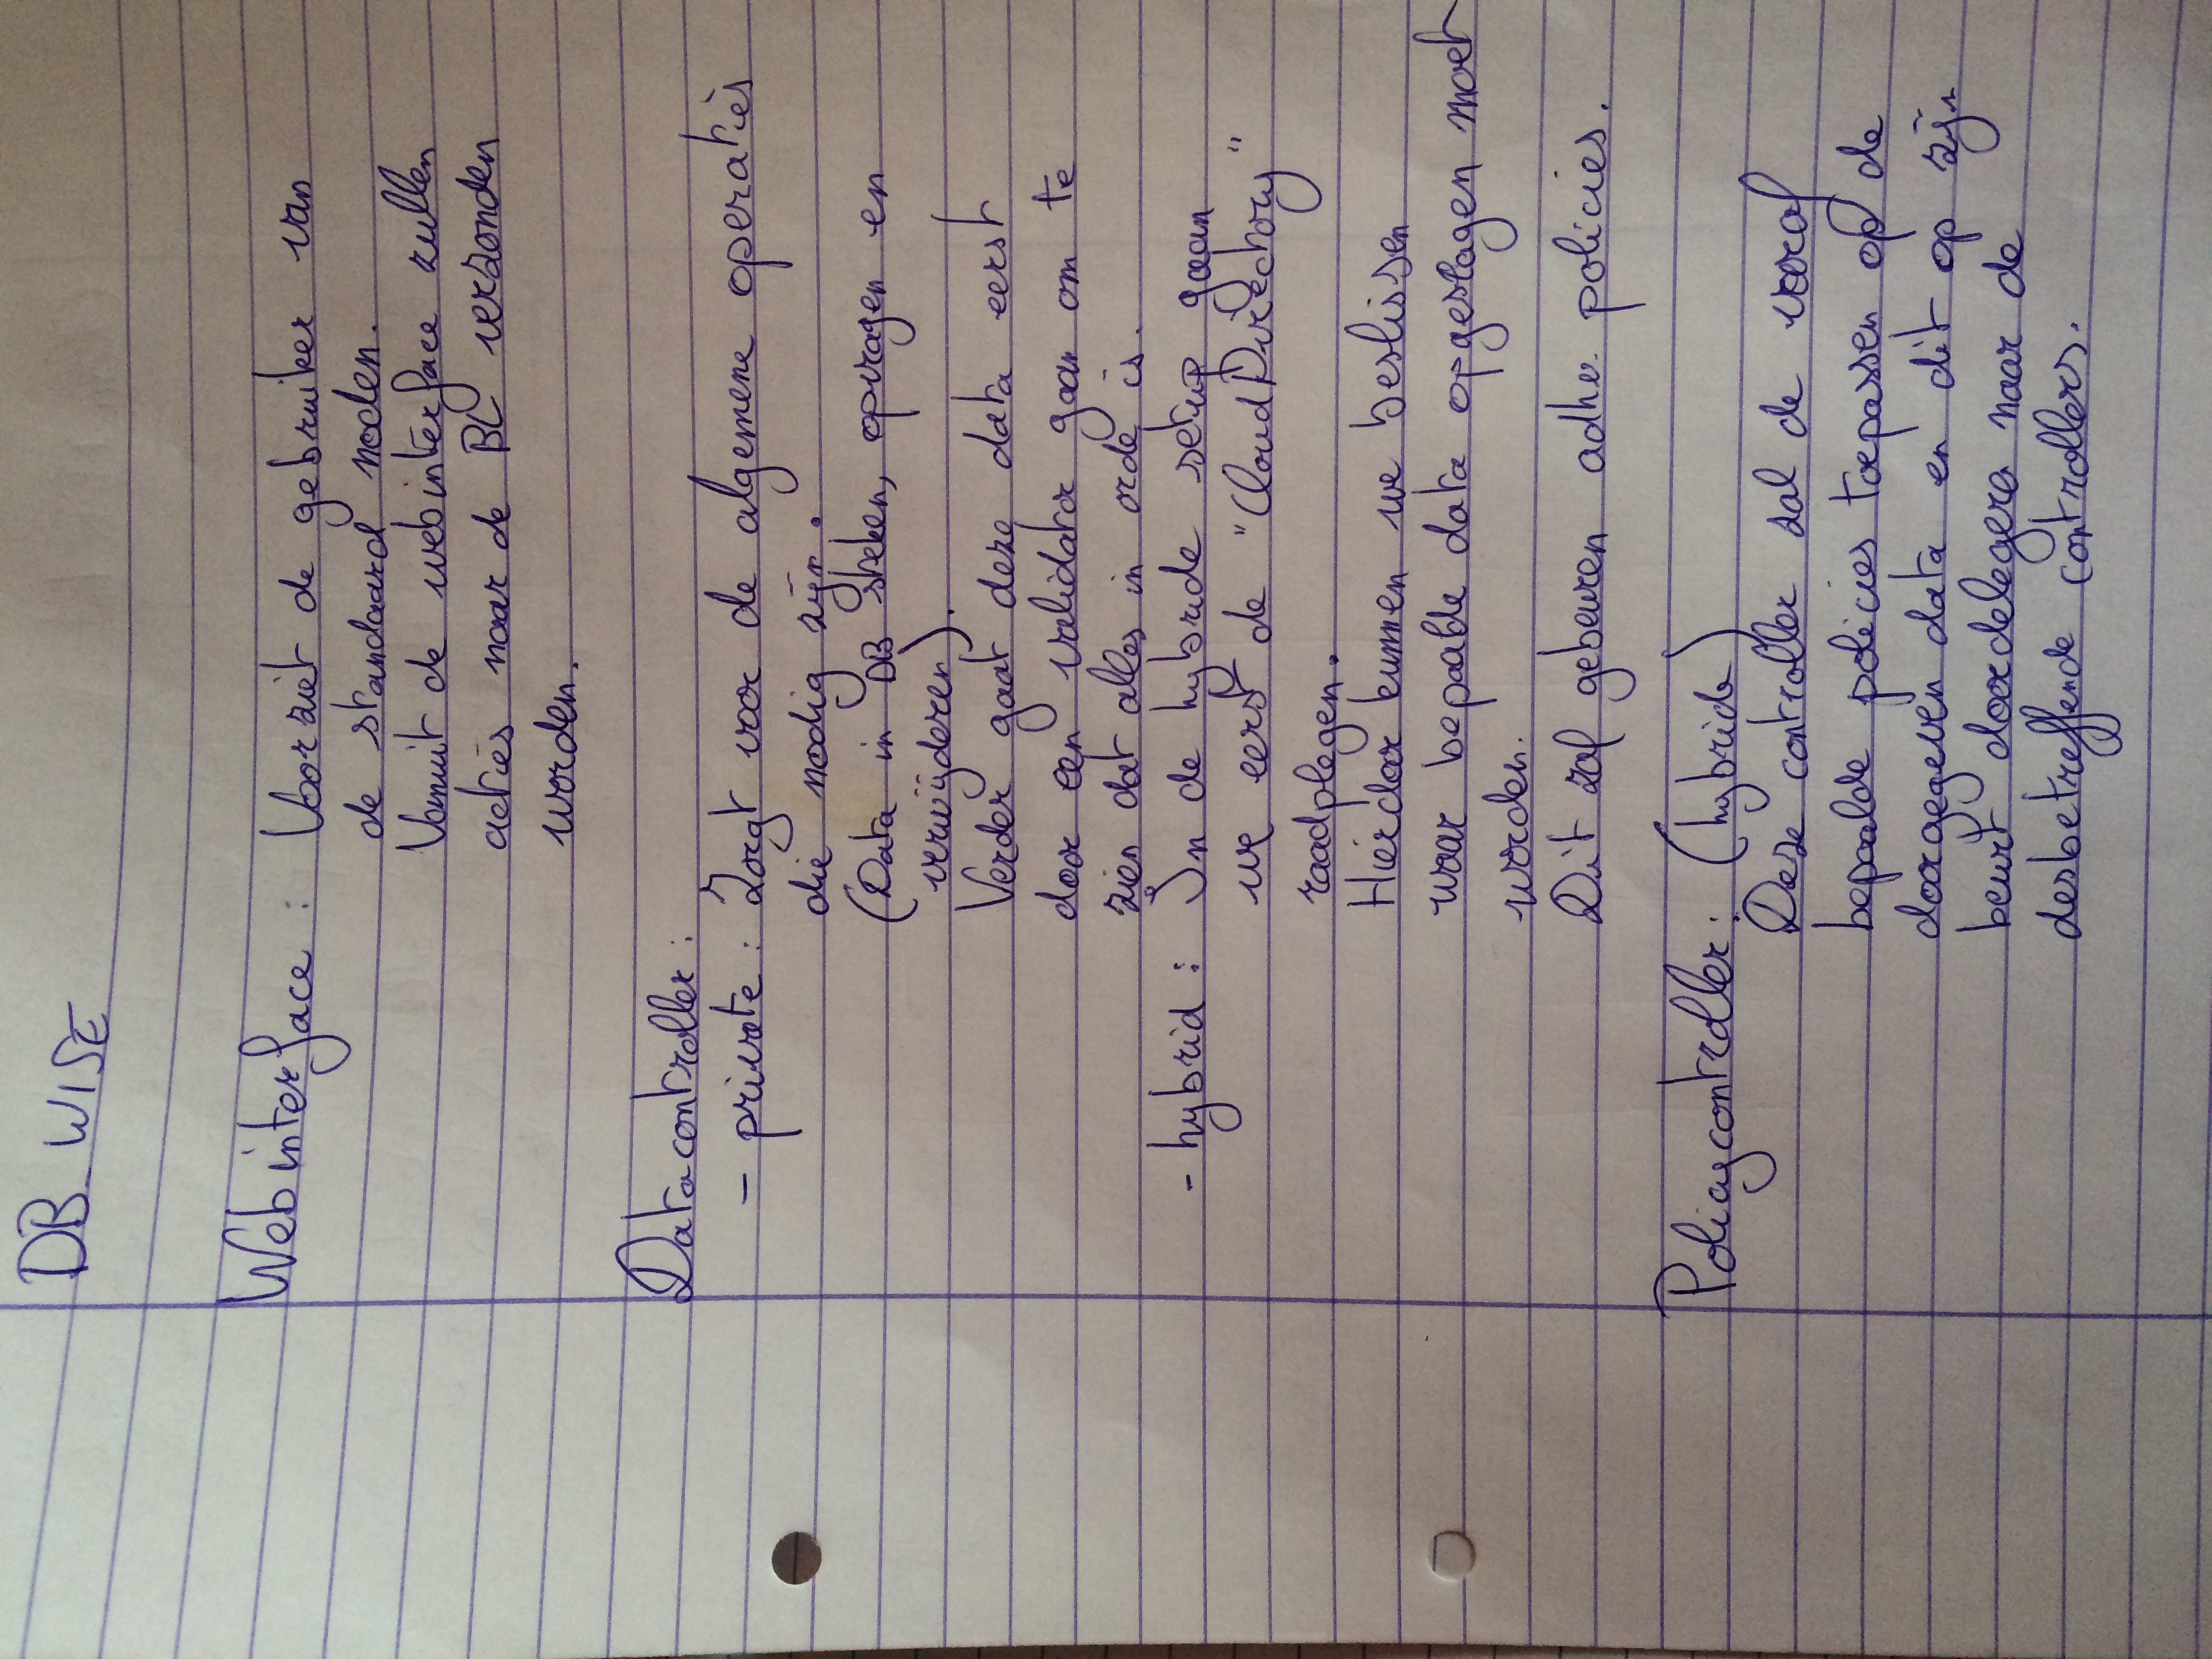 DB_WISE
Webinterface : Voorziet de gebruiker van
de standaard noden.
Vanuit de webinterface zullen
acties naar de BC verzonden
worden.
Datacontroller :
- private : Zorgt voor de algemene operaties
die nodig zijn.
(Data in DB steken, opvragen en
verwijderen).
Verder gaat deze data eerst
door een validator gaan om te
zien dat alles in orde is.
- hybrid : In de hybride setup gaan
we eerst de "CloudDirectory"
raadplegen.
Hierdoor kunnen we beslissen
waar bepaalde data opgeslagen moet
worden.
Dit zal gebeuren adhv. policies.
Policycontroller : (hybride)
Deze controller zal de vooraf
bepaalde policies toepassen op de
doorgegeven data en dit op zijn
beurt doordelegere naar de
desbetreffende controllers.